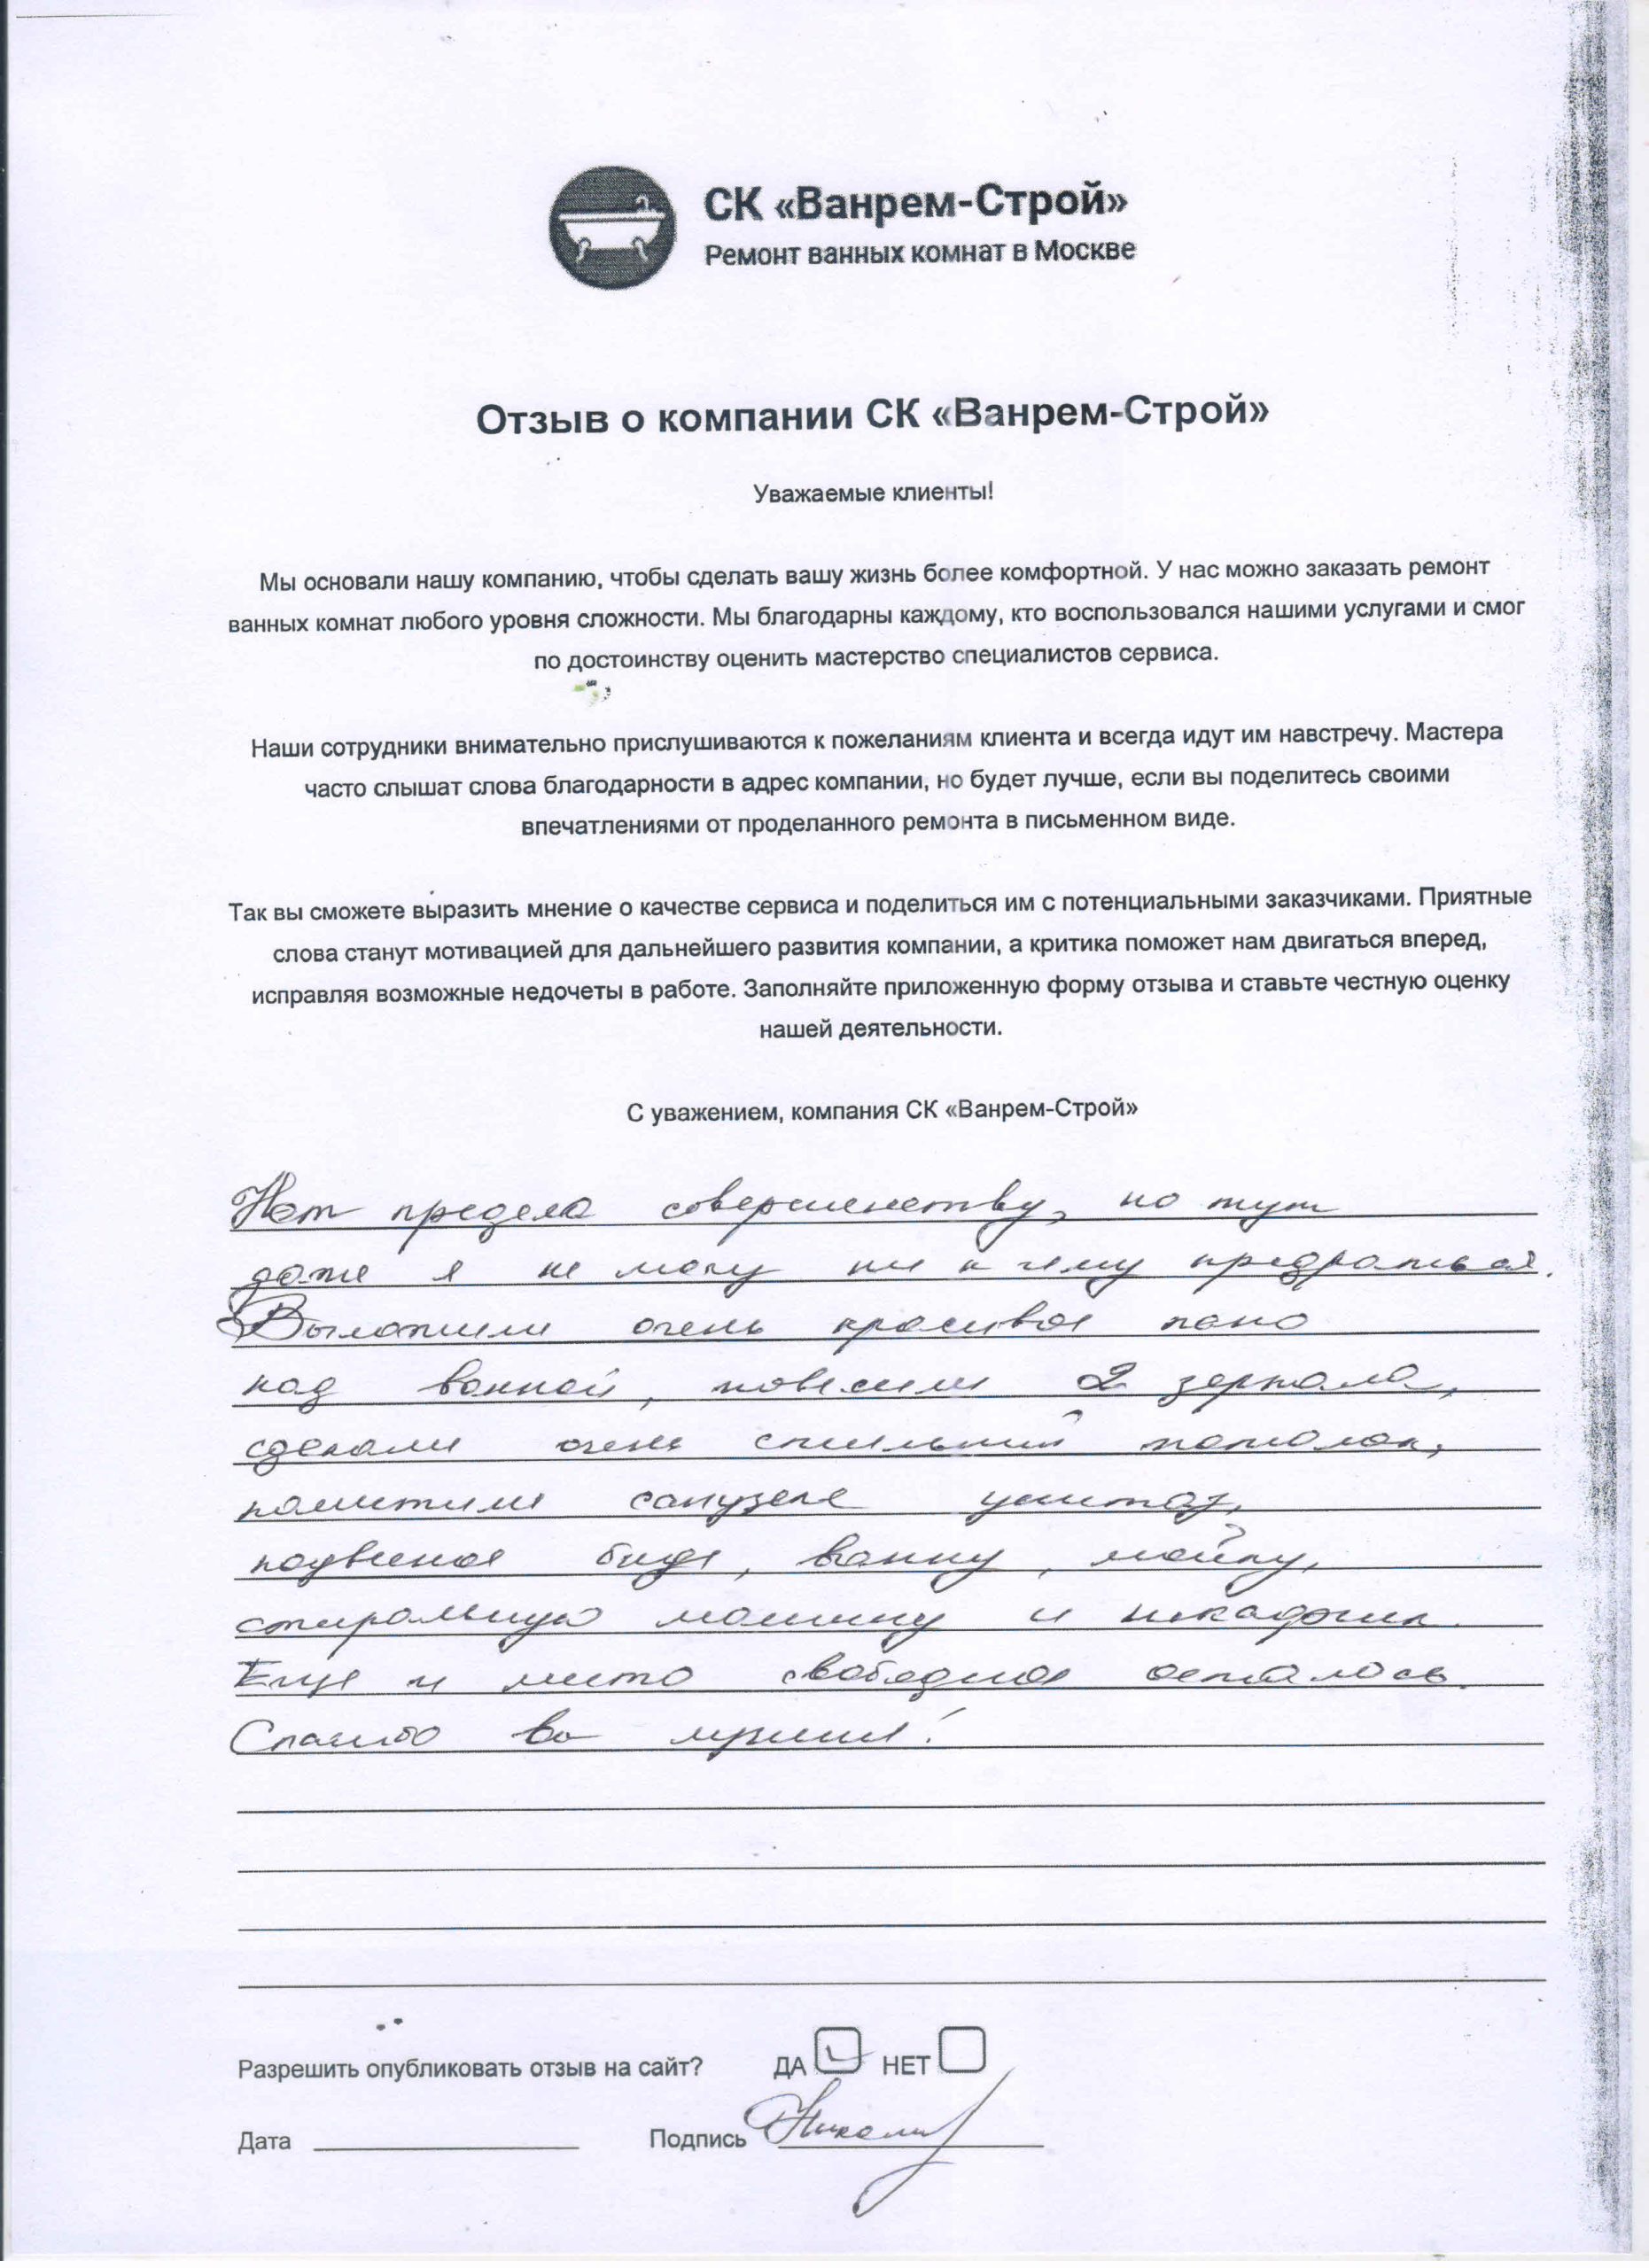 СК «Ванрем-Строй»
Ремонт ванных комнат в Москве
Отзыв о компании СК «Ванрем-Строй»
Уважаемые клиенты!
Мы основали нашу компанию, чтобы сделать вашу жизнь более комфортной. У нас можно заказать ремонт
ванных комнат любого уровня сложности. Мы благодарны каждому, кто воспользовался нашими услугами и смог
по достоинству оценить мастерство специалистов сервиса.
Наши сотрудники внимательно прислушиваются к пожеланиям клиента и всегда идут им навстречу. Мастера
часто слышат слова благодарности в адрес компании, но будет лучше, если вы поделитесь своими
впечатлениями от проделанного ремонта в письменном виде.
Так вы сможете выразить мнение о качестве сервиса и поделиться им с потенциальными заказчиками. Приятные
слова станут мотивацией для дальнейшего развития компании, а критика поможет нам двигаться вперед,
исправляя возможные недочеты в работе. Заполняйте приложенную форму отзыва и ставьте честную оценку
нашей деятельности.
С уважением, компания СК «Ванрем-Строй»
Нет предела совершенству, но тут
даже я не могу ни к чему придраться.
Выложили очень красивое пано
над ванной, повесили 2 зеркала,
сделали очень стильный потолок,
поместили санузеле унитаз,
подвесное биде, ванну, мойку,
стиральную машину и шкафчик.
Еще и место свободное осталось.
Спасибо вы лучшие!
Разрешить опубликовать отзыв на сайт? ДА НЕТ
Дата Подпись